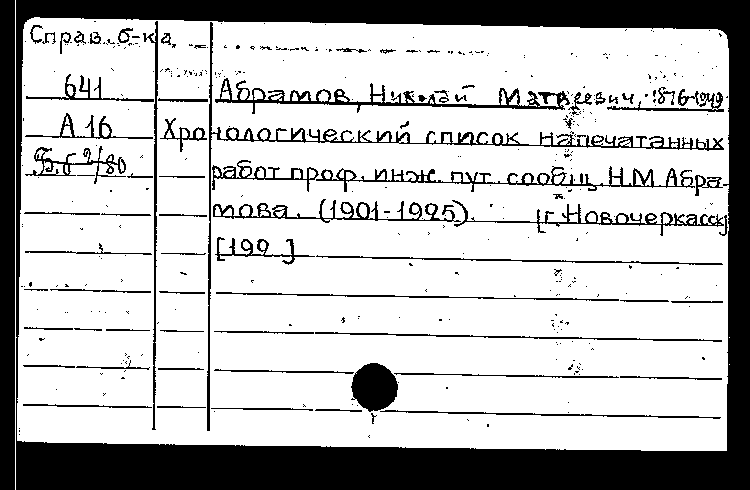 Справ. б-ка
641
Абрамов, Николай Матвеевич, 1876-1949
А 16
Хронологический список напечатанных
Б.б 2/80
работ проф. инж. пут. сообщ. Н.М. Абра-
мова. (1901-1925). [г. Новочеркасск]
[192 ]